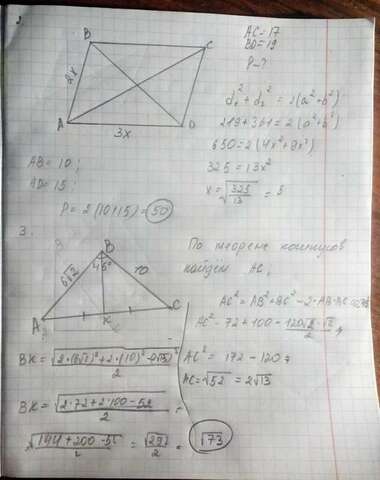 B
C
A
D
2x
3x
AC = 17
BD = 19
P - ?
d₁² + d₂² = 2(a² + b²)
289 + 361 = 2(a² + b²)
650 = 2(4x² + 9x²)
325 = 13x²
x = √(325/13) = 5
AB = 10;
AD = 15;
P = 2(10+15) = 50
3.
B
6√2
45°
10
A
K
C
По теореме косинусов
найдём AC,
AC² = AB² + BC² - 2·AB·
AC² = 72 + 100 - 120√2·√2/2
AC² = 172 - 120
AC = √52 = 2√13
BK = √(2·(6√2)² + 2·(10)² - (2√13)²)/2
BK = √(2·72 + 2·100 - 52)/2
√(144 + 200 - 52)/2 = √292/2 = √73